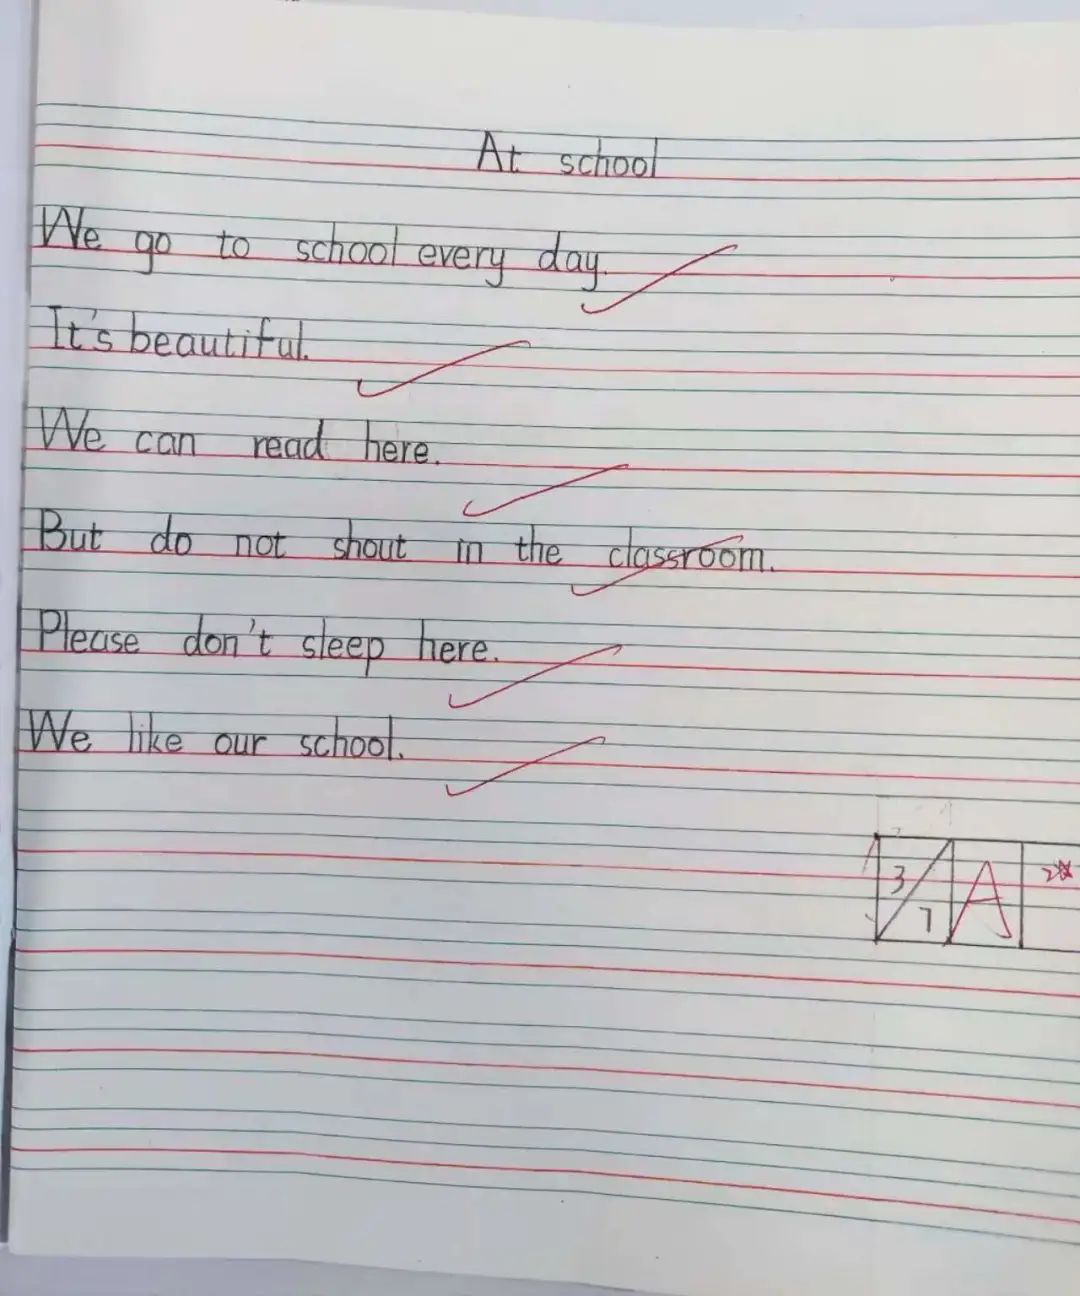 At school
We go to school every day.
It's beautiful.
We can read here.
But do not shout in the classroom.
Please don't sleep here.
We like our school.
3/7 A 2☆